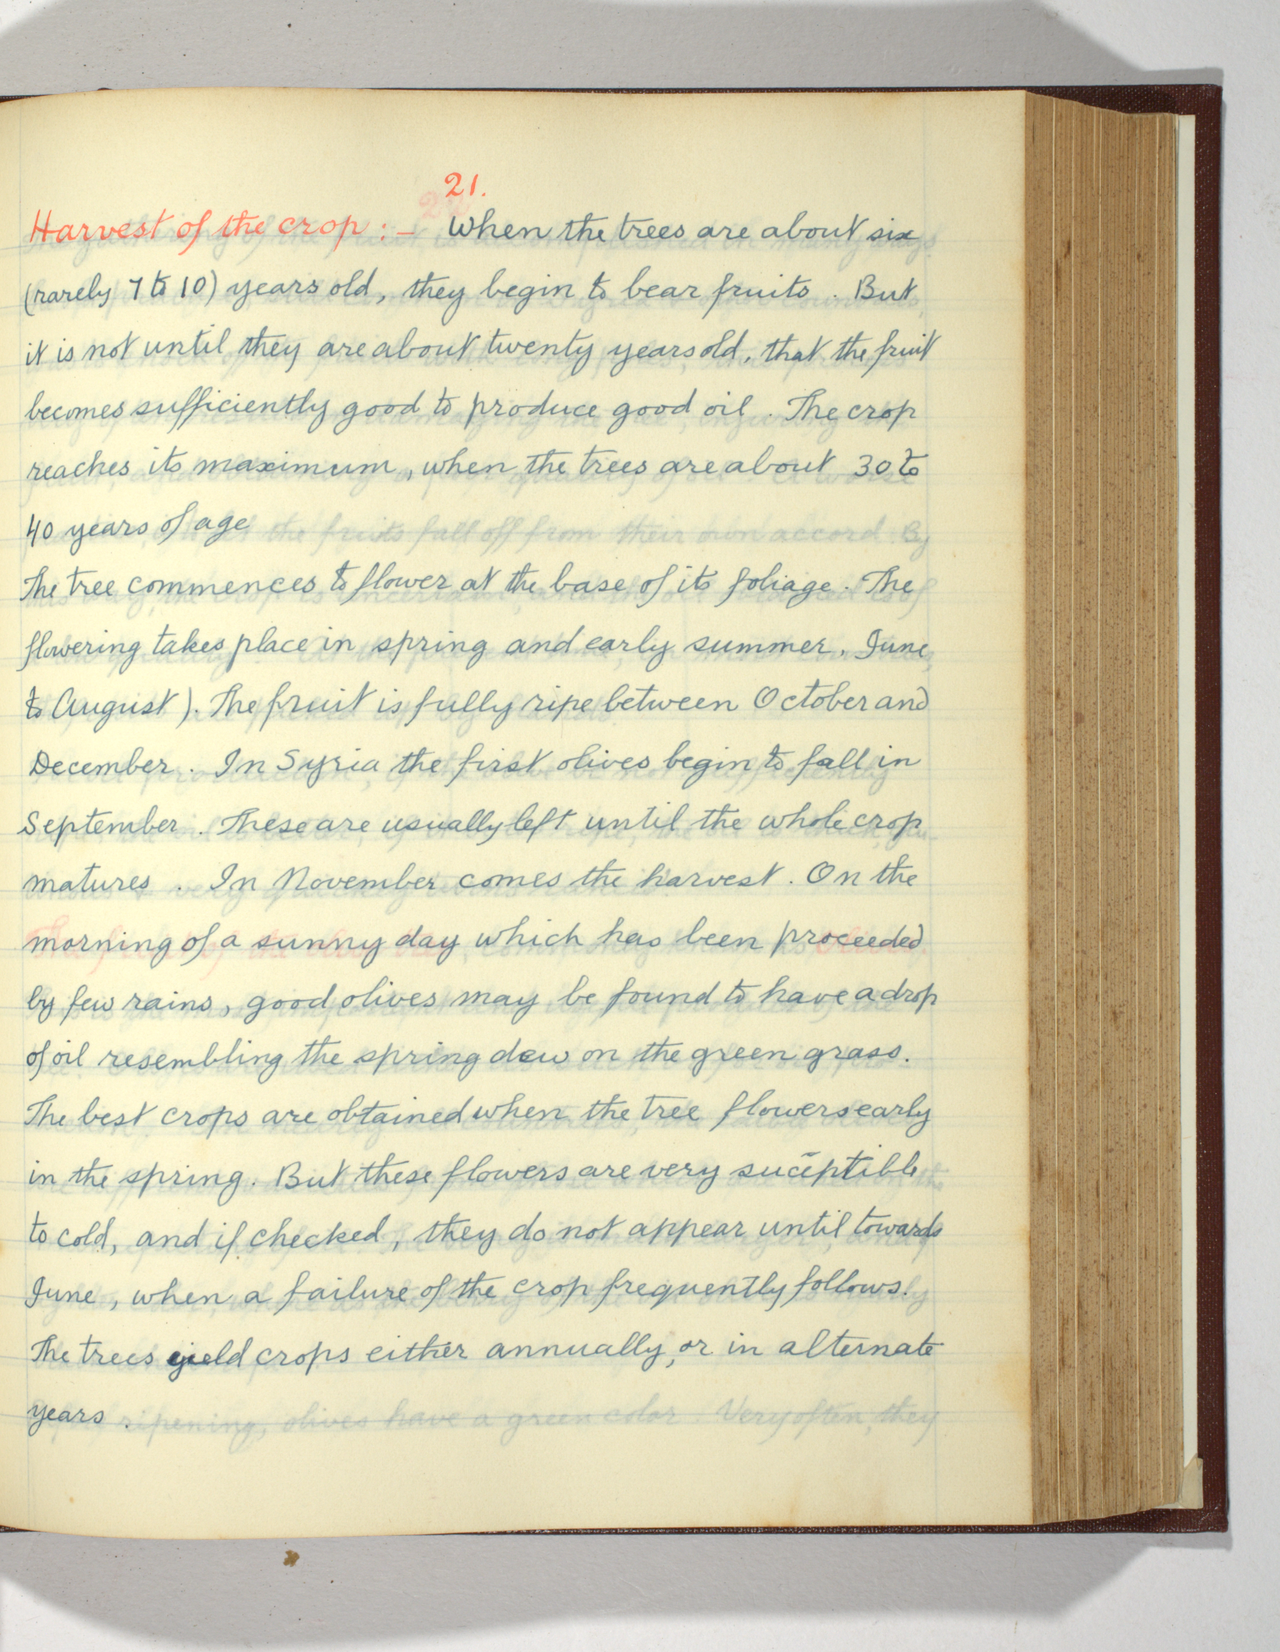 21.
Harvest of the crop :- When the trees are about six
(rarely 7 to 10) years old, they begin to bear fruits . But
it is not until they are about twenty years old, that the fruit
becomes sufficiently good to produce good oil . The crop
reaches its maximum , when the trees are about 30 to
40 years of age
The tree commences to flower at the base of its foliage . The
flowering takes place in spring and early summer , June
to August ). The fruit is fully ripe between October and
December . In Syria the first olives begin to fall in
September . These are usually left until the whole crop
matures . In November comes the harvest . On the
morning of a sunny day which has been proceeded
by few rains , good olives may be found to have a drop
of oil resembling the spring dew on the green grass .
The best crops are obtained when the tree flowers early
in the spring . But these flowers are very suceptible
to cold, and if checked , they do not appear until towards
June , when a failure of the crop frequently follows .
The trees yield crops either annually, or in alternate
years .